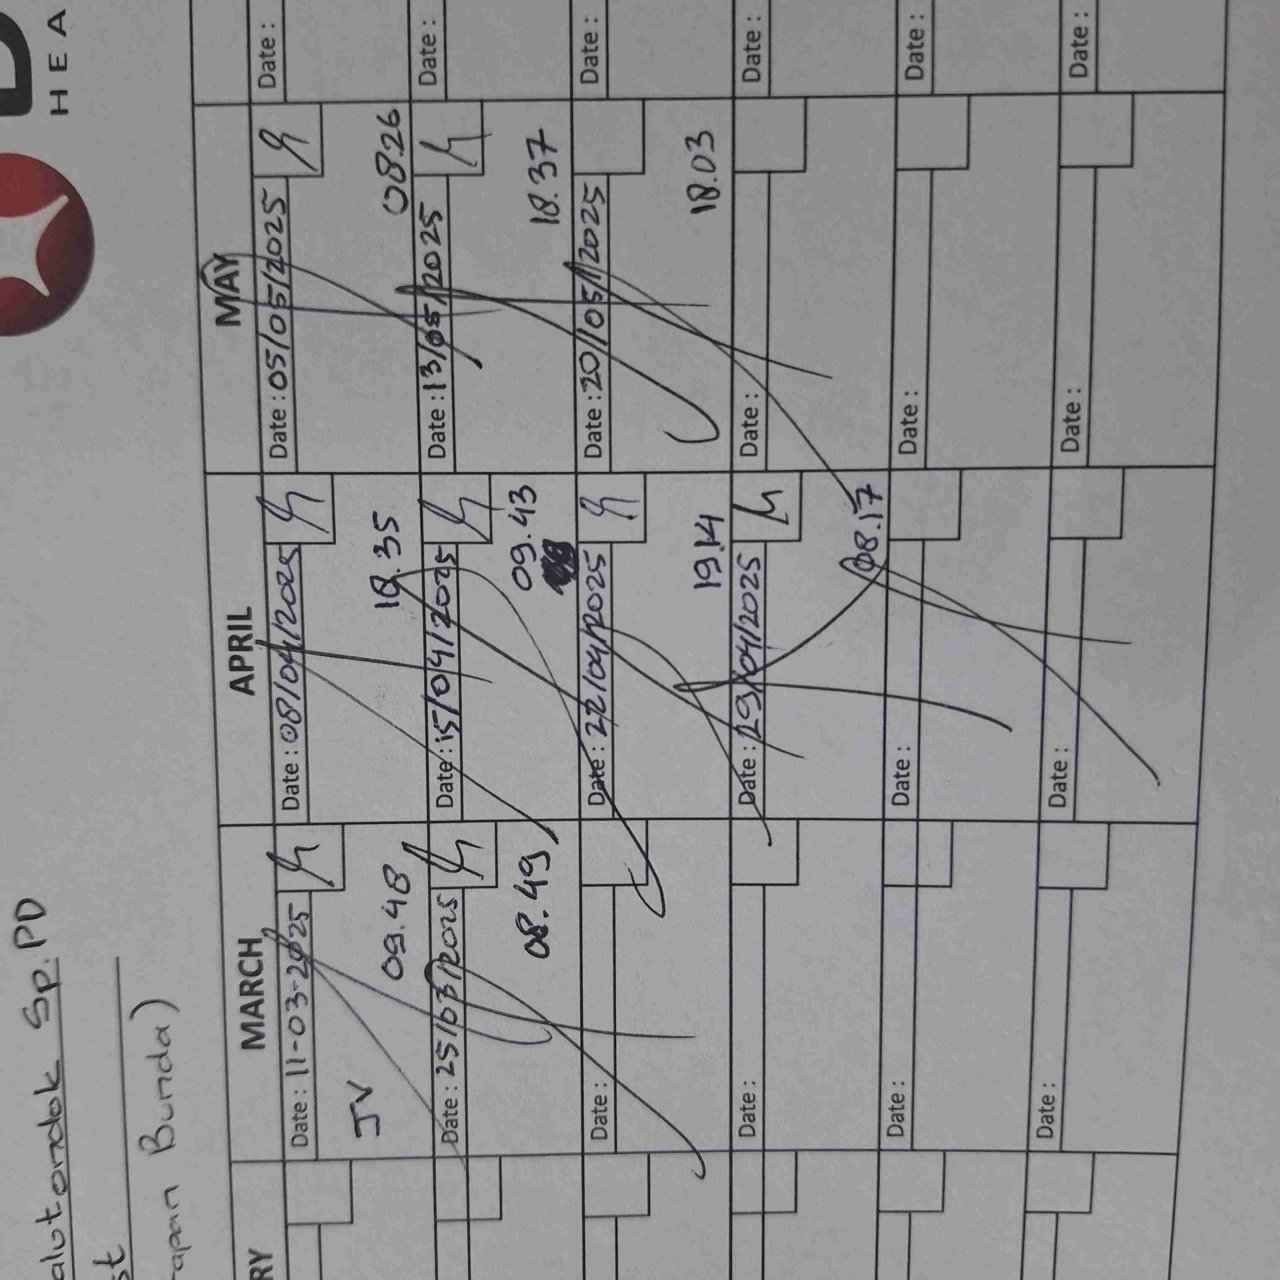 HEA
alutondok Sp.PD
st
rapan Bunda)
RY
MARCH
APRIL
MAY
Date : 11-03-2025
Date : 08/04/2025
Date : 05/05/2025
Date :
JV
09.48
18.35
08.26
Date : 25/03/2025
Date : 15/04/2025
Date : 13/05/2025
Date :
08.49
09.43
18.37
Date :
Date : 22/04/2025
Date : 20/05/2025
Date :
19.14
18.03
Date :
Date : 29/04/2025
Date :
Date :
08.17
Date :
Date :
Date :
Date :
Date :
Date :
Date :
Date :